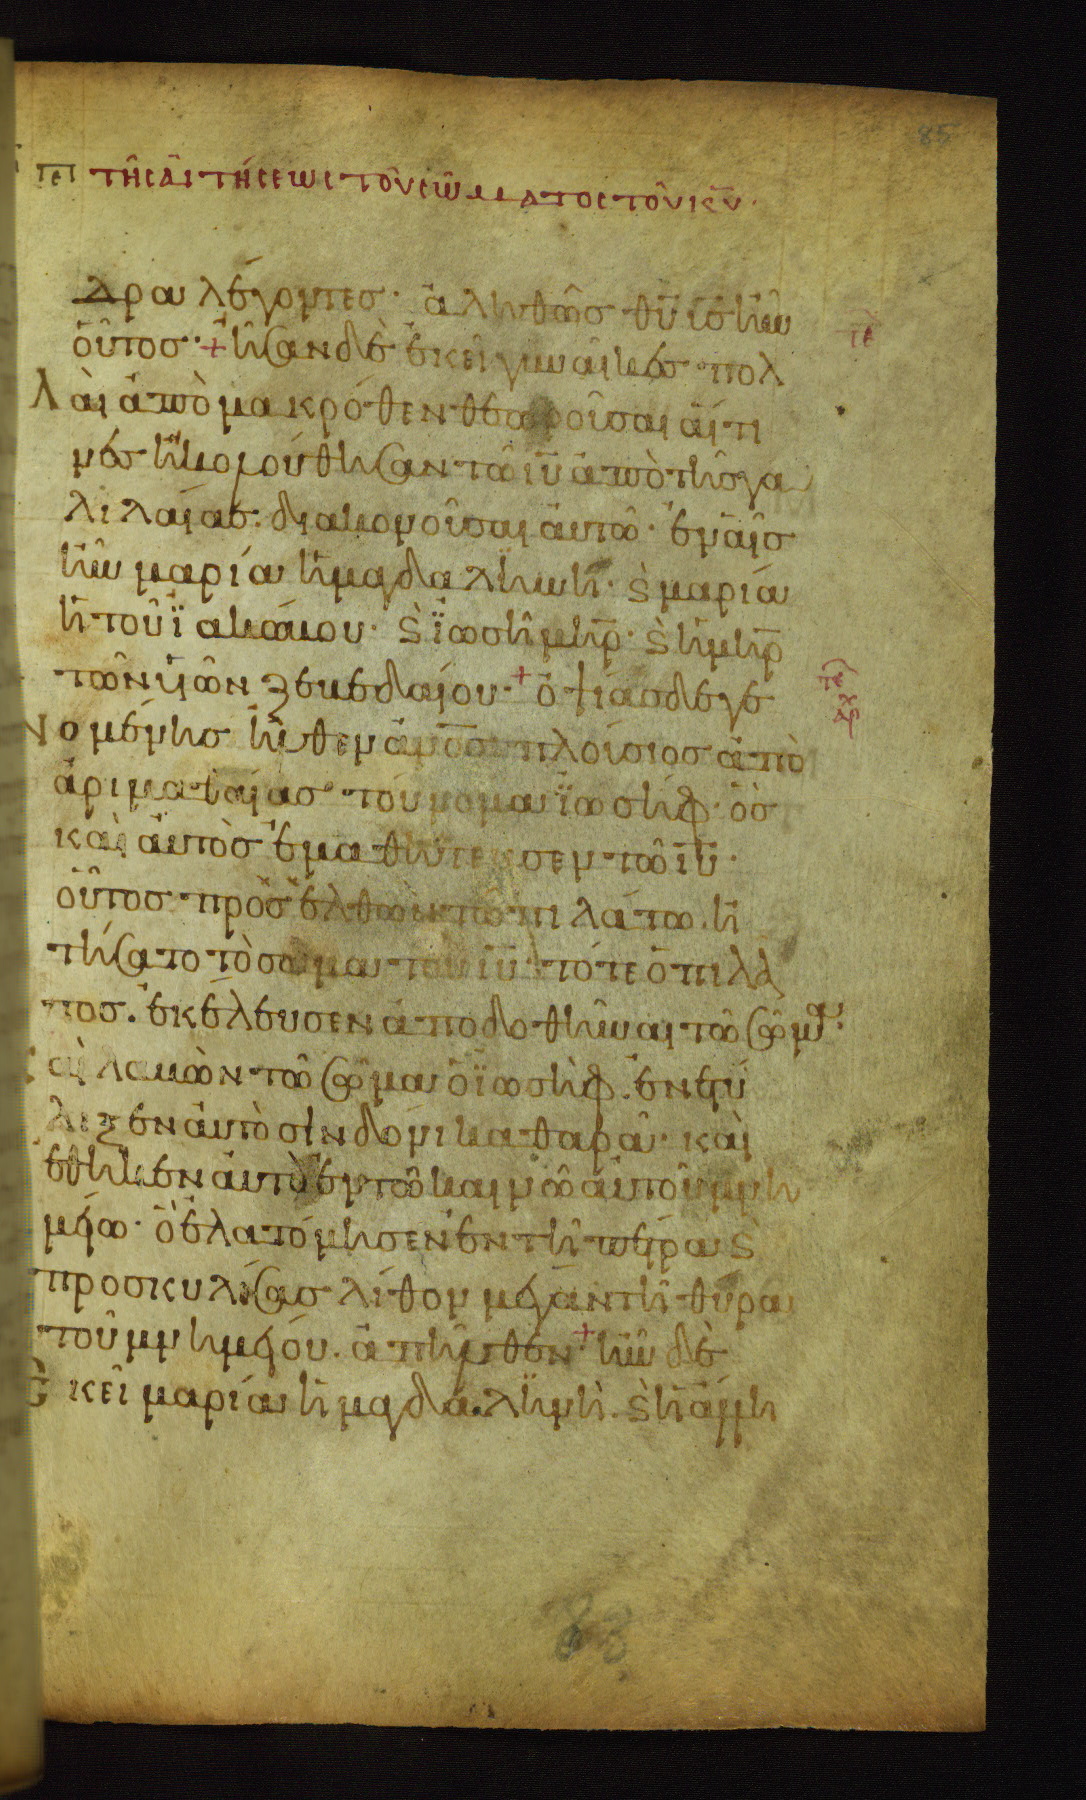 85
πε τῆς αἰτήσεως τοῦ σώματος τοῦ κ̅υ
δρα λέγοντες· ἀληθῶς θ̅υ υ̅ς ἦν
οὗτος· + ἦσαν δὲ ἐκεῖ γυναῖκες πολ
λαὶ ἀπὸ μακρόθεν θεωροῦσαι αἵτι
νες ἠκολούθησαν τῶ ι̅υ ἀπὸ τῆς γα
λιλαίας. διακονοῦσαι αὐτῶ· ἐν αἷς
ἦν μαρία ἡ μαγδαληνή· ϗ μαρία
ἡ τοῦ ϊακώβου· ϗ ϊωσῆ μ̅η̅ρ· ϗ ἡ μ̅η̅ρ
τῶν υἱῶν ζεβεδαίου· + ὀψίας δὲ γε
νομένης ἦλθεν ἄν̅ο̅ς πλούσιος ἀπὸ
ἀριμαθαίας τοὔνομα ϊωσήφ· ὃς
καὶ αὐτὸς ἐμαθήτευσεν τῶ ι̅υ·
οὗτος προσελθὼν τῶ πιλάτω. ἠ
τήσατο τὸ σῶμα τοῦ ι̅υ· τότε ὁ πιλά
τος. ἐκέλευσεν ἀποδοθῆναι τὸ σῶμα·
καὶ λαβὼν τὸ σῶμα ὁ ϊωσὴφ. ἐνετύ
λιξεν αὐτὸ σινδόνι καθαρᾶ· καὶ
ἔθηκεν αὐτὸ ἐν τῶ καινῶ αὐτοῦ μνη
μείω· ὃ ἐλατόμησεν ἐν τῆ πέτρα ϗ
προσκυλίσας λίθον μέγαν τῆ θύρα
τοῦ μνημείου. ἀπῆλθεν· + ἦν δὲ
ἐκεῖ μαρία ἡ μαγδαληνὴ. ϗ ἡ ἄλλη
τε
τε
αρ
83